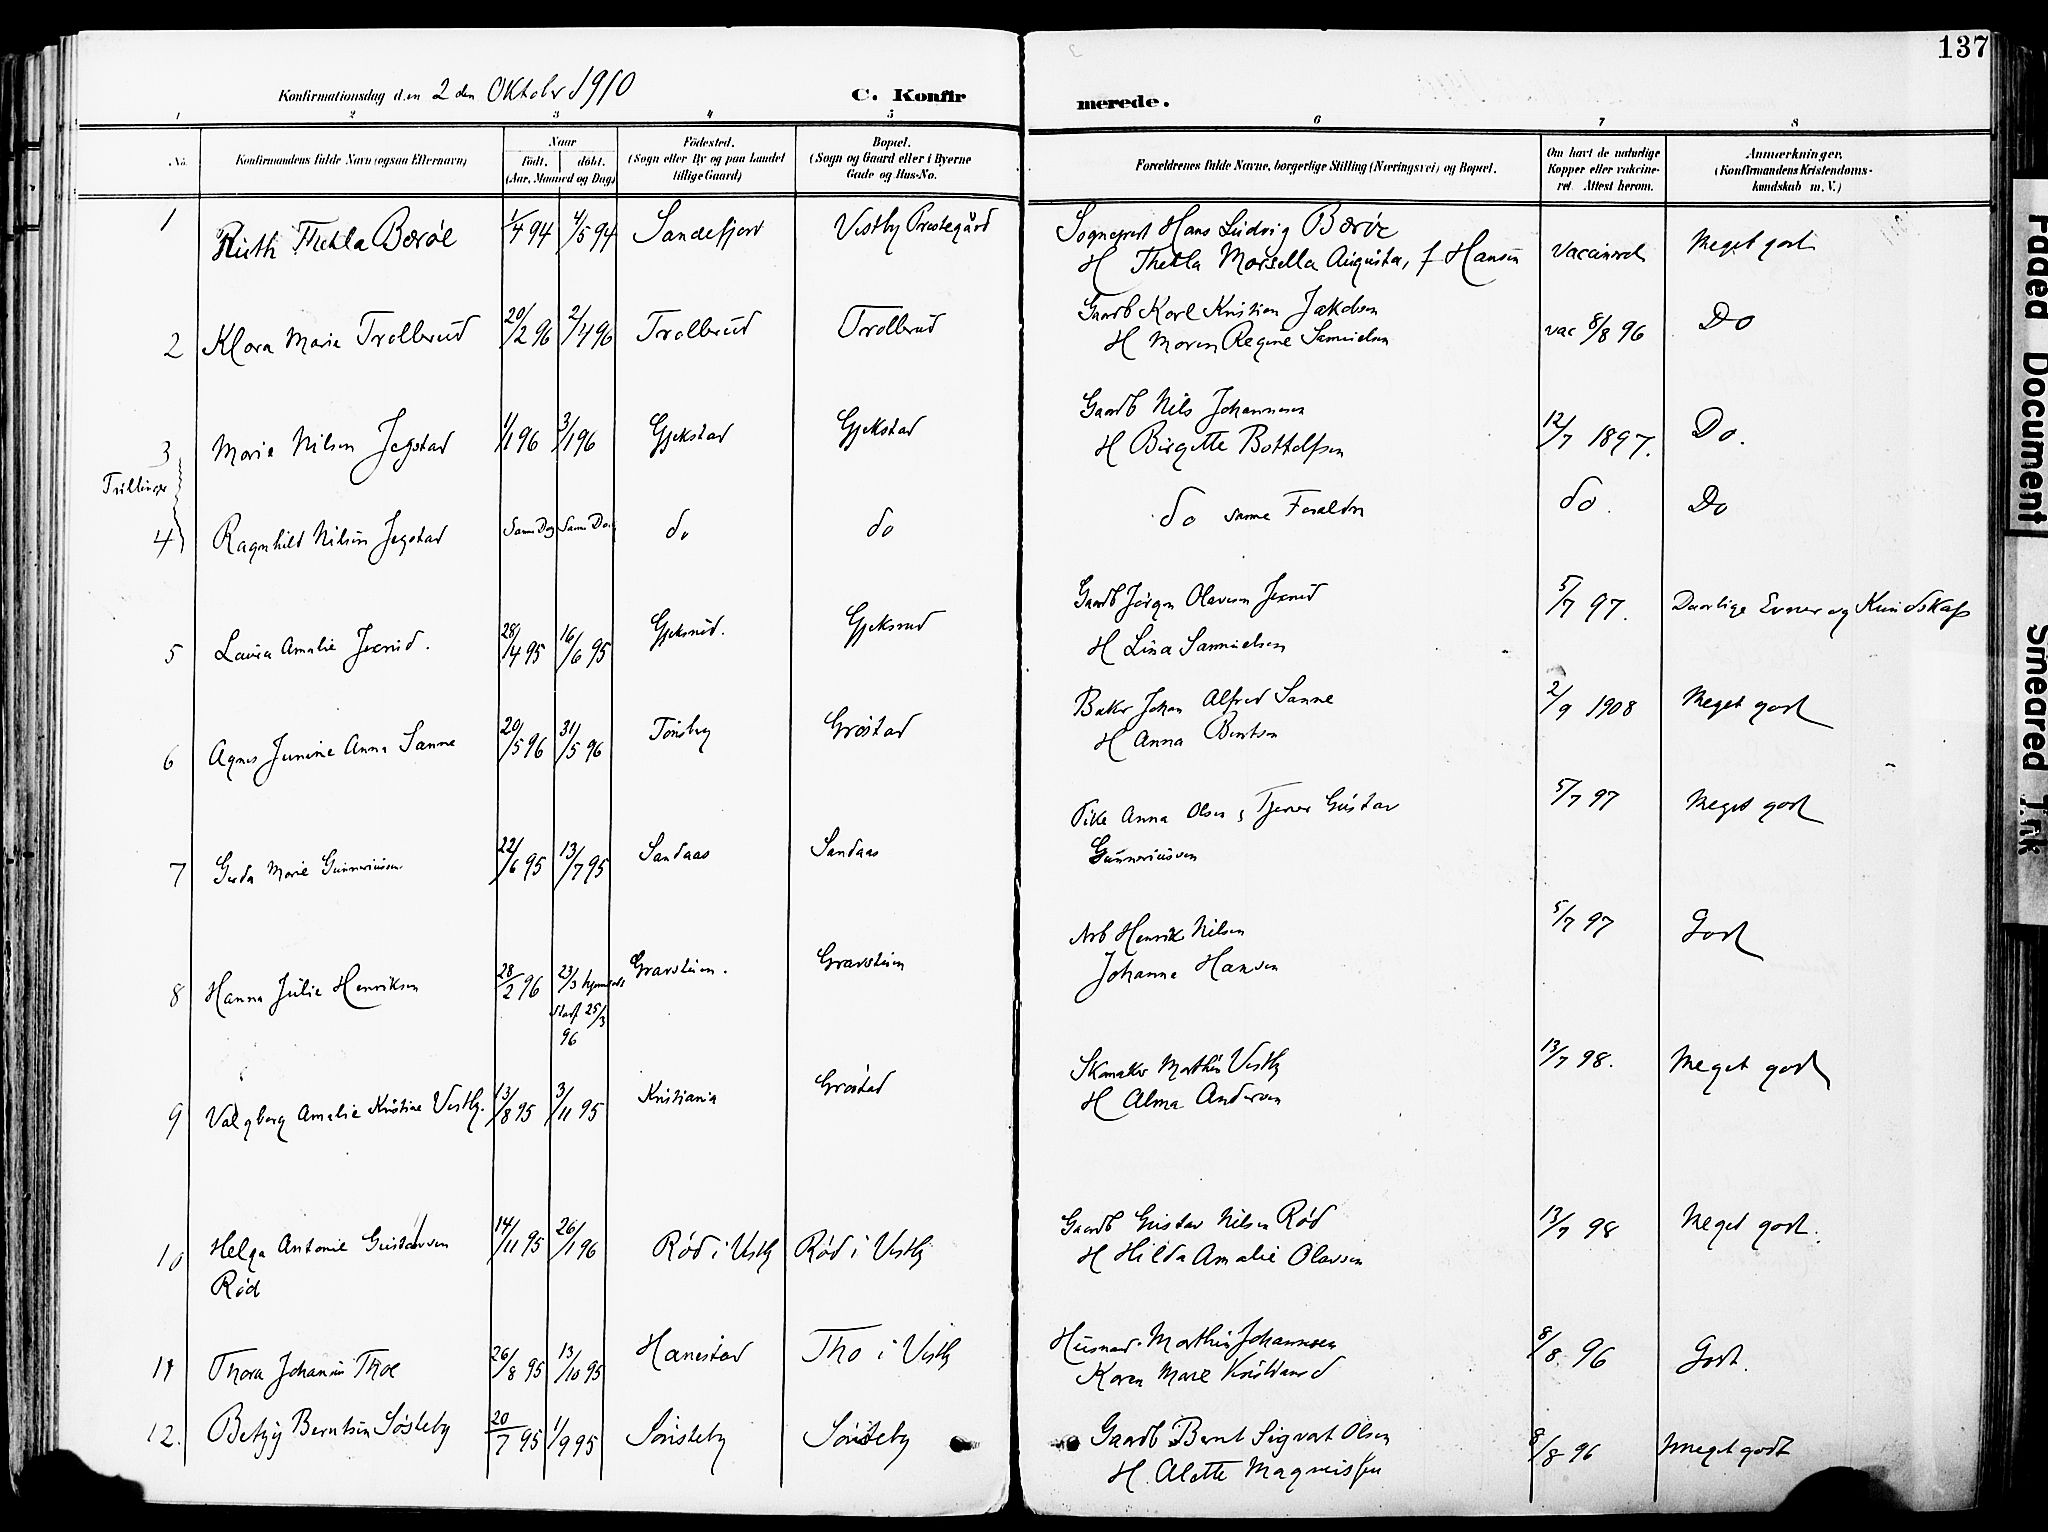 137
Konfirmationsdag den 2 den Oktober 1910
C. Konfirmerede.
1 2 3 4 5 6 7 8
No.
Konfirmandens fulde Navn (ogsaa Efternavn)
Naar
födt. döbt.
(Aar, Maaned og Dag)
Födested.
(Sogn eller By og paa Landet
tillige Gaard)
Bopæl.
(Sogn og Gaard eller i Byerne
Gade og Hus-No.
Forældrenes fulde Navne, borgerlige Stilling (Næringsvei) og Bopæl.
Om havt de naturlige
Kopper eller vakcine-
ret Attest herom.
Anmærkninger.
(Konfirmandens Kristendoms-
kundskab m. V.)
1 Ruth Thekla Bærøe 1/4 94 4/5 94 Sandefjord Vestby Prestegård
Sogneprest Hans Ludvig Bærøe
H Thekla Marsella Augusta, f Hansen
vaccinered Meget godt
2 Klara Marie Trollerud 20/2 96 2/4 96 Trollerud Trollerud
Gaardb Karl Kristian Jakobsen
H Maren Regine Samuelsen
vac 8/8 96 Do
3 Marie Nilsen Jegstad 1/1 96 3/1 96 Gjekstad Gjekstad
Gaardb Nils Johannesen
H Birgitte Bottolfsen
12/7 1897. Do.
Trillinger
4 Ragnhild Nilsen Jegstad Samme Dag Samme Dag do do
do samme Forældre
do. Do
5 Laura Amalie Jexrud. 28/4 95 16/6 95 Gjeksrud. Gjeksrud
Gaardb Jörgen Olavesen Jexrud
H Lina Samuelsen
5/7 97. Daarlige Evner og Kundskap
6 Agnes Junine Anna Sanne 20/5 96 31/5 96 Tönsberg Gröstad
Baker Johan Alfred Sanne
H Anna Berntsen
2/9 1908 Meget godt
7 Gerda Marie Gunneriussen 22/6 95 13/7 95 Sandaas Sandaas
Pike Anna Olsen; Tjener Gustav
Gunneriussen
5/7 97 Meget godt
8 Hanna Julie Henriksen 28/2 96 23/3 hjemmedt
Stadf 25/3
96
Gravsteien. Gravsteien
Arb Henrik Nilsen
Johanne Hansen
5/7 97 Godt
9 Valgberg Amalie Kristine Vestby. 13/8 95 3/11 95 Kristiania Gröstad
Skomaker Marthin Vestby
H Alma Andersen
13/7 98. Meget godt
10 Helga Antonie Gustavsen
Röd
14/11 95 26/1 96 Röd i Vestby Röd i Vestby
Gaardb Gustav Nilsen Röd
H Hilda Amalie Olavsen
13/7 98 Meget godt.
11 Thora Johanne Thoe 26/8 95 13/10 95 Hanestad Tho i Vestby
Husmd. Marthin Johannsen
Karen Marie
8/8. 96 Godt.
12. Betzy Berntsen Sösteby 20/7 95 1/9 95 Sönsteby Sönsteby
Gaardb Bernt Sigvart Olsen
H. Alette Magnussen
8/8 96 Meget godt
Faded Document
Smeared Ink